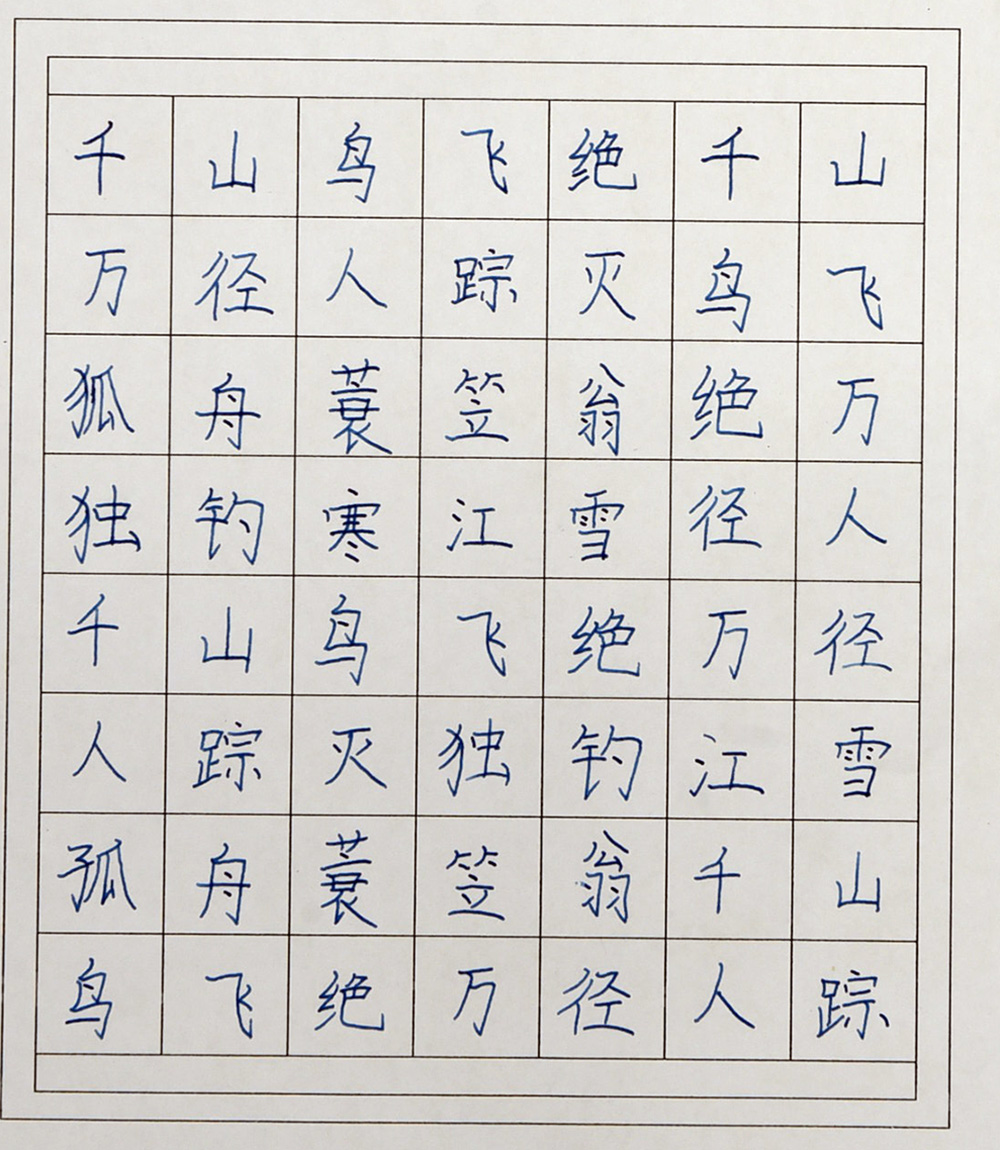 千山鸟飞绝千山
万径人踪灭鸟飞
狐舟蓑笠翁绝万
独钓寒江雪径人
千山鸟飞绝万径
人踪灭独钓江雪
孤舟蓑笠翁千山
鸟飞绝万径人踪